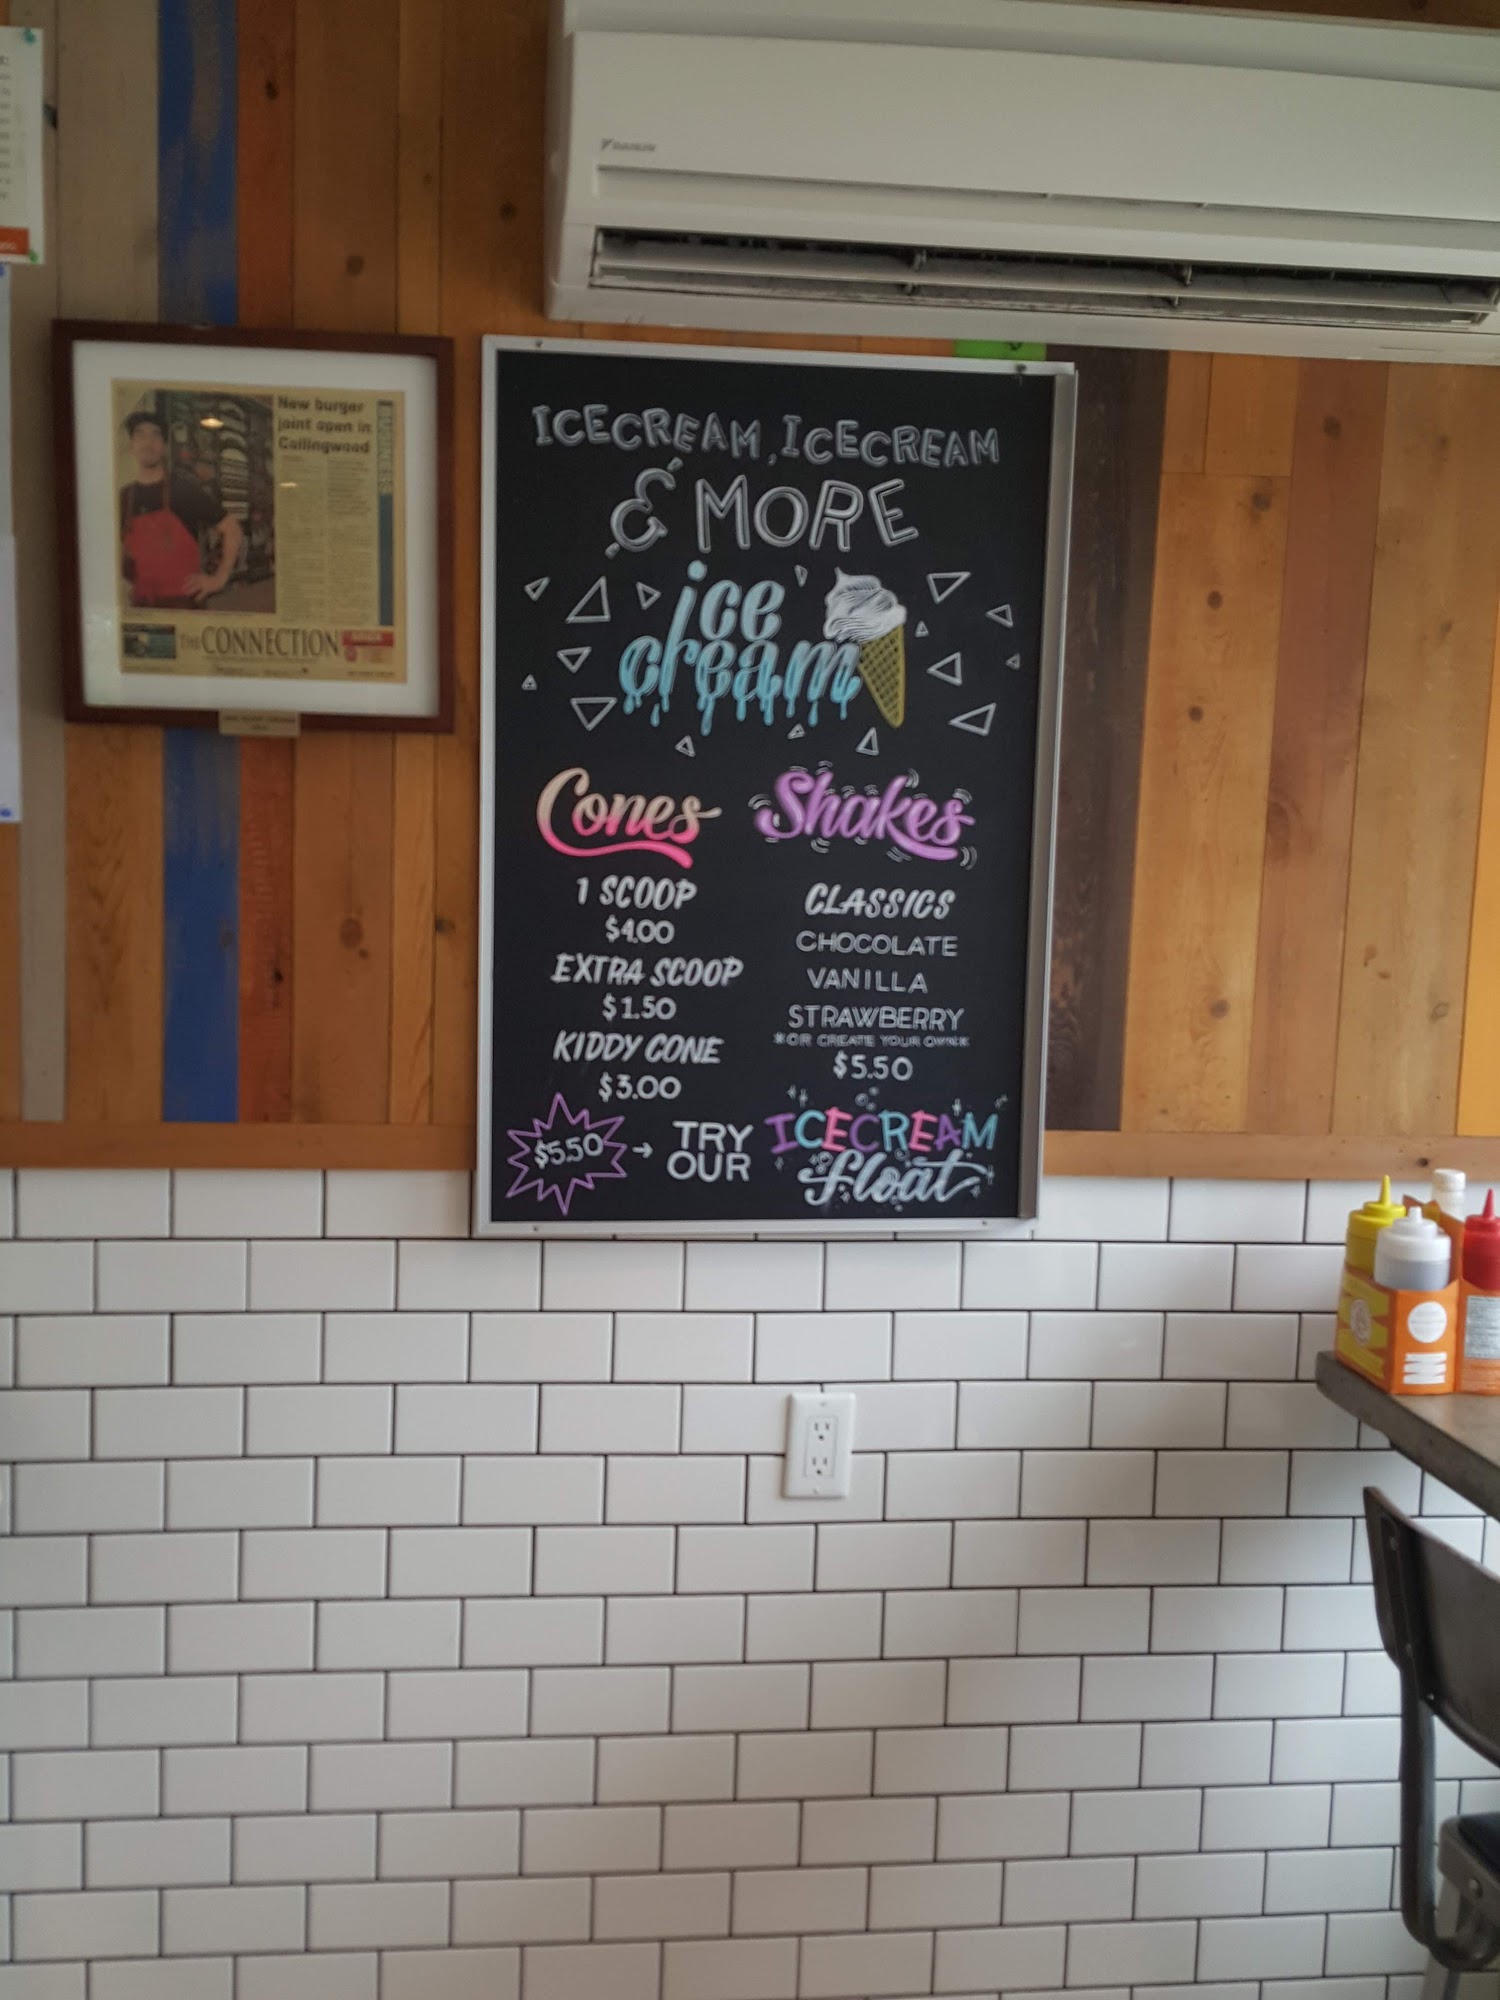 DAIKIN
New burger
joint open in
Collingwood
BUSINESS
THE CONNECTION
ICECREAM, ICECREAM
& MORE
ice
cream
Cones
1 SCOOP
$4.00
EXTRA SCOOP
$1.50
KIDDY CONE
$3.00
Shakes
CLASSICS
CHOCOLATE
VANILLA
STRAWBERRY
*OR CREATE YOUR OWN*
$5.50
$5.50 → TRY
OUR
ICECREAM
float